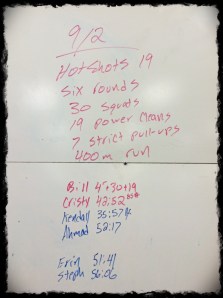 9/2
Hotshots 19
six rounds
30 squats
19 power cleans
7 strict pull-ups
400m run
Bill 4+30+19
Cristy 42:52
Kendall 35:57
Ahmad 52:17
Erin 51:41
Steph 56:06